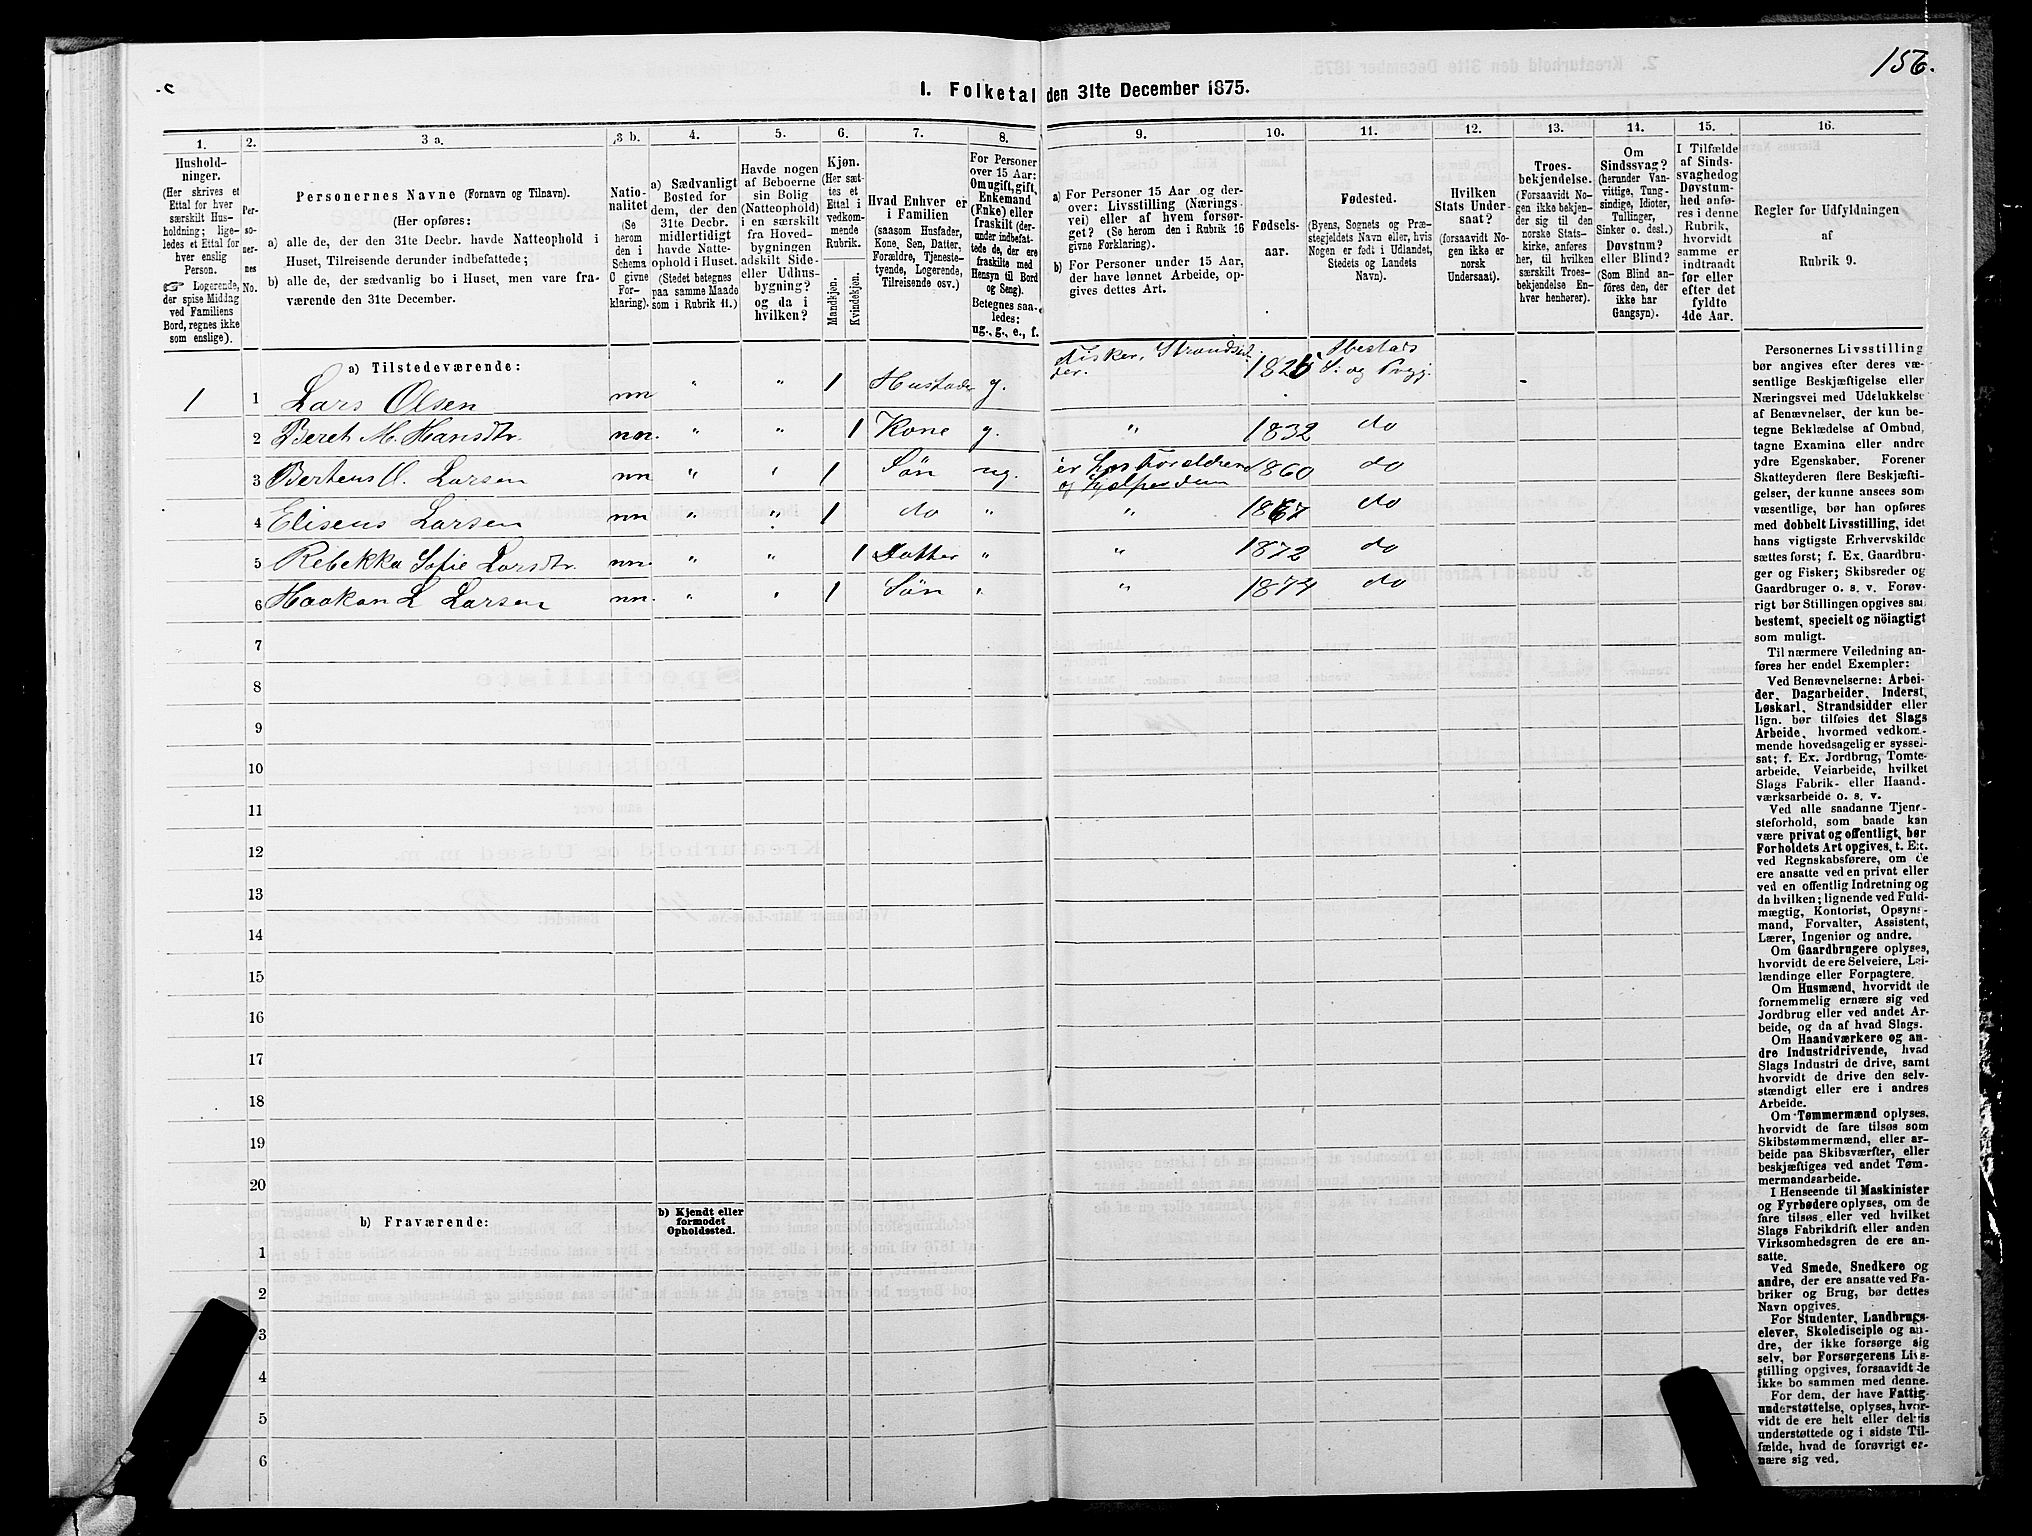 156.
I. Folketal den 31te December 1875.
1.
Hushold-
ninger.
(Her skrives et
Ettal for hver
særskilt Hus-
holdning; lige-
ledes et Ettal for
hver enslig
Person.
☞ Logerende,
der spise Middag
ved Familiens
Bord, regnes ikke
som enslige).
2.
Per-
so-
ner-
nes
No.
3 a.
Personernes Navne (Fornavn og Tilnavn).
(Her opføres:
a) alle de, der den 31te Decbr. havde Natteophold i
Huset, Tilreisende derunder indbefattede;
b) alle de, der sædvanlig bo i Huset, men vare fra-
værende den 31te December.
3 b.
Natio-
nalitet
(Se
herom
den i
Schema
C givne
For-
klaring).
4.
a) Sædvanligt
Bosted for
dem, der den
31te Decbr.
midlertidigt
havde Natte-
ophold i Huset.
(Stedet betegnes
paa samme Maade
som i Rubrik 11.)
5.
Havde nogen
af Beboerne
sin Bolig
(Natteophold)
i en særskilt
fra Hoved-
bygningen
adskilt Side-
eller Udhus-
bygning?
og da i
hvilken?
6.
Kjøn.
(Her sæt-
tes et
Ettal i
vedkom-
mende
Rubrik.
Mandkjøn.
Kvindekjøn.
7.
Hvad Enhver er
i Familien
(saasom Husfader,
Kone, Søn, Datter,
Forældre, Tjeneste-
tyende, Logerende,
Tilreisende osv.)
8.
For Personer
over 15 Aar:
Om ugift, gift,
Enkemand
(Enke) eller
fraskilt (der-
under indbefat-
tede de, der ere
fraskilte med
Hensyn til Bord
og Seng).
Betegnes saa-
ledes:
ug., g., e., f.
9.
a) For Personer 15 Aar og der-
over: Livsstilling (Nærings-
vei) eller af hvem forsør-
get? (Se herom den i Rubrik 16
givne Forklaring).
b) For Personer under 15 Aar,
der have lønnet Arbeide, op-
gives dettes Art.
10.
Fødsels-
aar.
11.
Fødested.
(Byens, Sognets og Præ-
stegjeldets Navn eller, hvis
Nogen er født i Udlandet,
Stedets og Landets
Navn).
12.
Hvilken
Stats Under-
saat?
(forsaavidt No-
gen ikke er
norsk
Undersaat).
13.
Troes-
bekjendelse.
(Forsaavidt No-
gen ikke bekjen-
der sig til den
norske Stats-
kirke, anføres
her, til hvilken
særskilt Troes-
bekjendelse En-
hver henhører).
14.
Om
Sindssvag?
(herunder Van-
vittige, Tung-
sindige, Idioter,
Tullinger,
Sinker o. desl.)
Døvstum?
eller Blind?
(Som Blind an-
føres den, der
ikke har
Gangsyn).
15.
I Tilfælde
af Sinds-
svaghed og
Døvstum-
hed anfø-
res i denne
Rubrik,
hvorvidt
samme er
indtraadt
før eller
efter det
fyldte
4de Aar.
16.
Regler for Udfyldningen
af
Rubrik 9.
a) Tilstedeværende:
1 1 Lars Olsen nn " " 1 Husfader g. Fisker, Strandsid- 1826 Ibestads
der. S. og Prgj.
2 Beret M. Hansdtr. nn. " " 1 Kone g. " 1832 do
3 Berteus O. Larsen nn " " 1 Søn ug. er hos Forældrene 1860 do
og hjelper dem
4 Eliseus Larsen nn " " 1 do " " 1867 do
5 Rebekka Sofie Larsdtr. nn. " " 1 Datter " " 1872 do
6 Haakon L Larsen nn. " " 1 Søn " " 1874 do
7
8
9
10
11
12
13
14
15
16
17
18
19
20
b) Fraværende:
b) Kjendt eller
formodet
Opholdssted.
1
2
3
4
5
6
Personernes Livsstilling
bør angives efter deres væ-
sentlige Beskjæftigelse eller
Næringsvei med Udelukkelse
af Benævnelser, der kun be-
tegne Beklædelse af Ombud,
tagne Examina eller andre
ydre Egenskaber. Forener
Skatteyderen flere Beskjæfti-
gelser, der kunne ansees som
væsentlige, bør han opføres
med dobbelt Livsstilling, idet
hans vigtigste Erhvervskilde
sættes først; f. Ex. Gaardbru-
ger og Fisker; Skibsreder og
Gaardbruger o. s. v. Forøv-
rigt bør Stillingen opgives saa
bestemt, specielt og nöiagtigt
som muligt.
Til nærmere Veiledning an-
føres her endel Exempler:
Ved Benævnelserne: Arbei-
der, Dagarbeider, Inderst,
Løskarl, Strandsidder eller
lign. bør tilføies det Slags
Arbeide, hvormed vedkom-
mende hovedsagelig er syssel-
sat; f. Ex. Jordbrug, Tomte-
arbeide, Veiarbeide, hvilket
Slags Fabrik- eller Haand-
værksarbeide o. s. v.
Ved alle saadanne Tjene-
steforhold, som baade kan
være privat og offentligt, bør
Forholdets Art opgives, t. Ex.
ved Regnskabsførere, om de
ere ansatte ved en privat eller
ved en offentlig Indretning og
da hvilken; lignende ved Fuld-
mægtig, Kontorist, Opsyns-
mand, Forvalter, Assistent,
Lærer, Ingeniør og andre.
Om Gaardbrugere oplyses,
hvorvidt de ere Selveiere, Lei-
lændinge eller Forpagtere.
Om Husmænd, hvorvidt de
fornemmelig ernære sig ved
Jordbrug eller ved andet Ar-
beide, og da af hvad Slags.
Om Haandværkere og an-
dre Industridrivende, hvad
Slags Industri de drive, samt
hvorvidt de drive den selv-
stændigt eller ere i andres
Arbeide.
Om Tømmermænd oplyses,
hvorvidt de fare tilsøs som
Skibstømmermænd, eller ar-
beide paa Skibsværfter, eller
beskjæftiges ved andet Tøm-
mermandsarbeide.
I Henseende til Maskinister
og Fyrbødere oplyses, om de
fare tilsøs eller ved hvilket
Slags Fabrikdrift eller anden
Virksomhedsgren de ere an-
satte.
Ved Smede, Snedkere og
andre, der ere ansatte ved Fa-
briker og Brug, bør dettes
Navn opgives.
For Studenter, Landbrugs-
elever, Skoledisciple og an-
dre, der ikke forsørge sig
selv, bør Forsørgerens Livs-
stilling opgives, forsaavidt de
ikke bo sammen med denne.
For dem, der have Fattig-
understøttelse, oplyses, hvor-
vidt de ere helt eller delvis
understøttede og i sidste Til-
fælde, hvad de forøvrigt er-
nære sig ved.